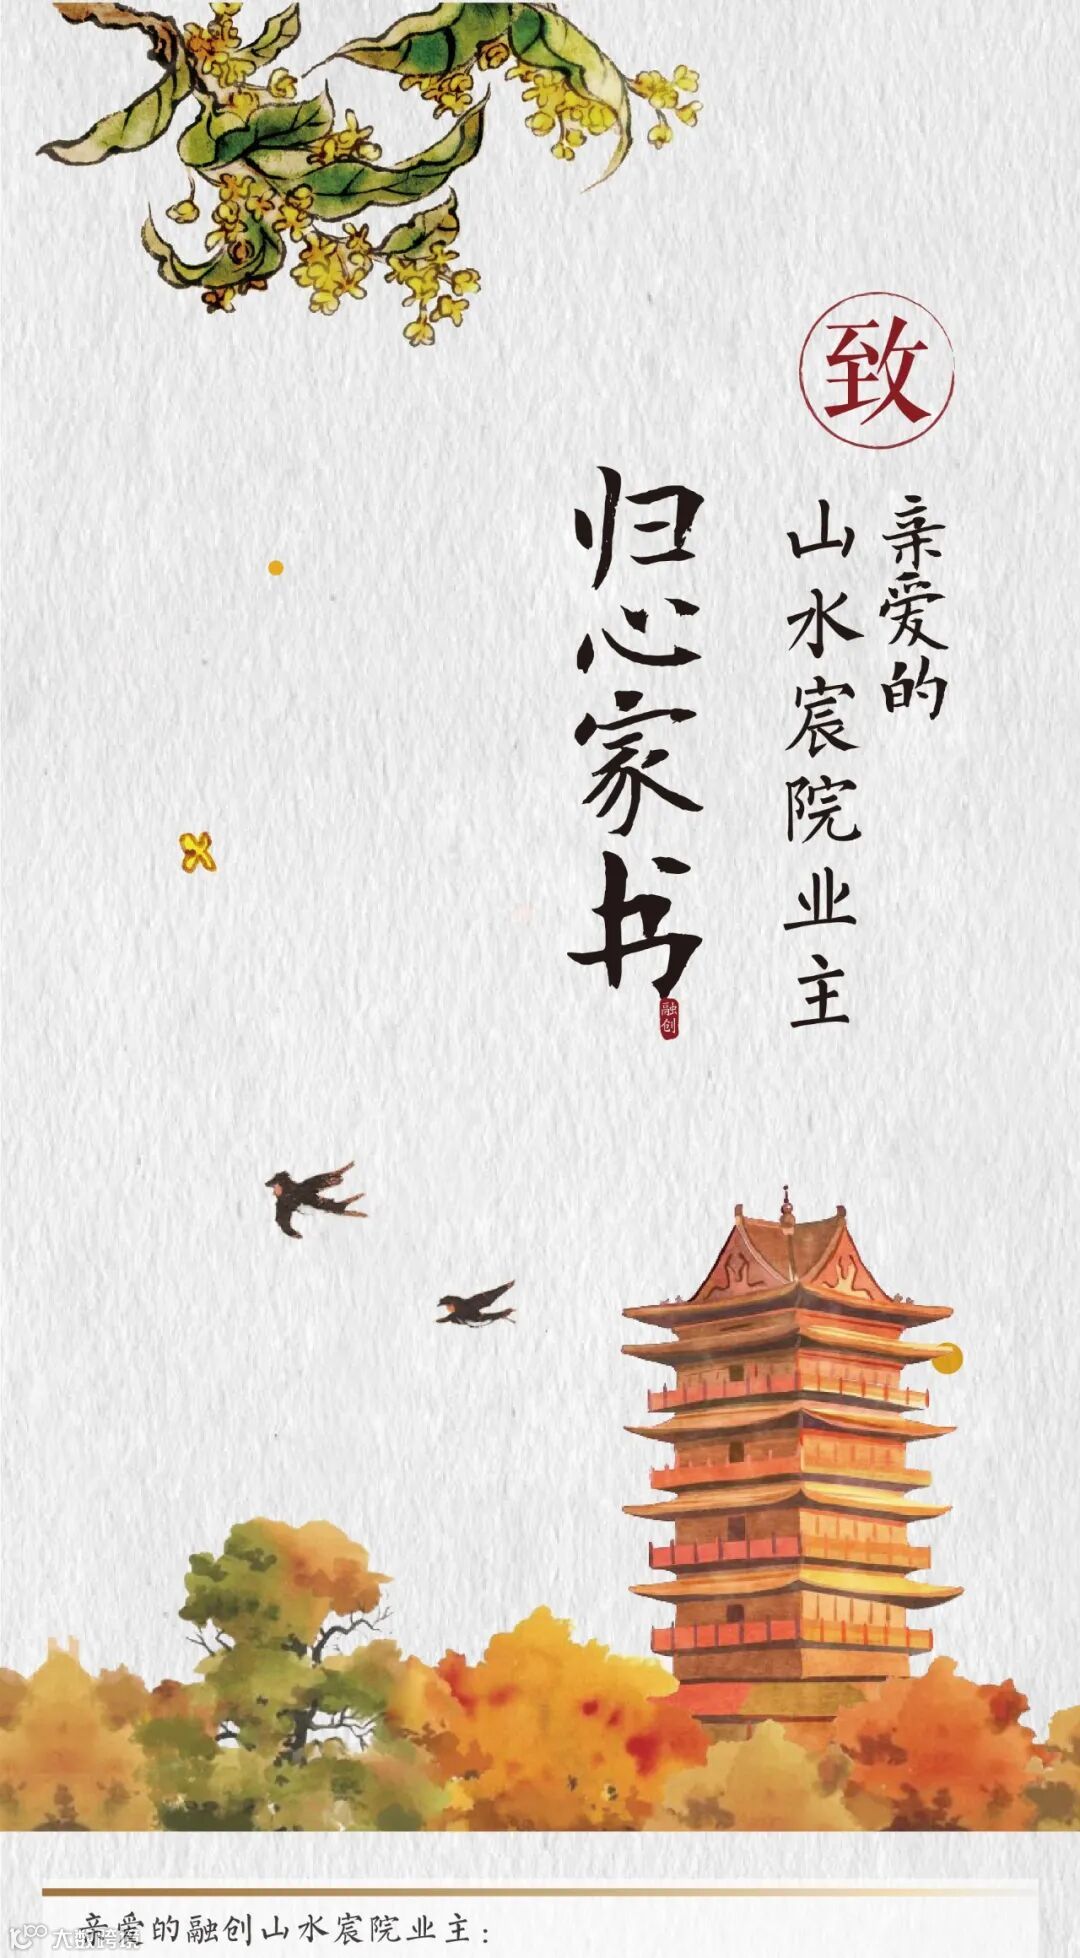 致
亲爱的
山水宸院业主
归心家书
融创
亲爱的融创山水宸院业主：
大数跨境